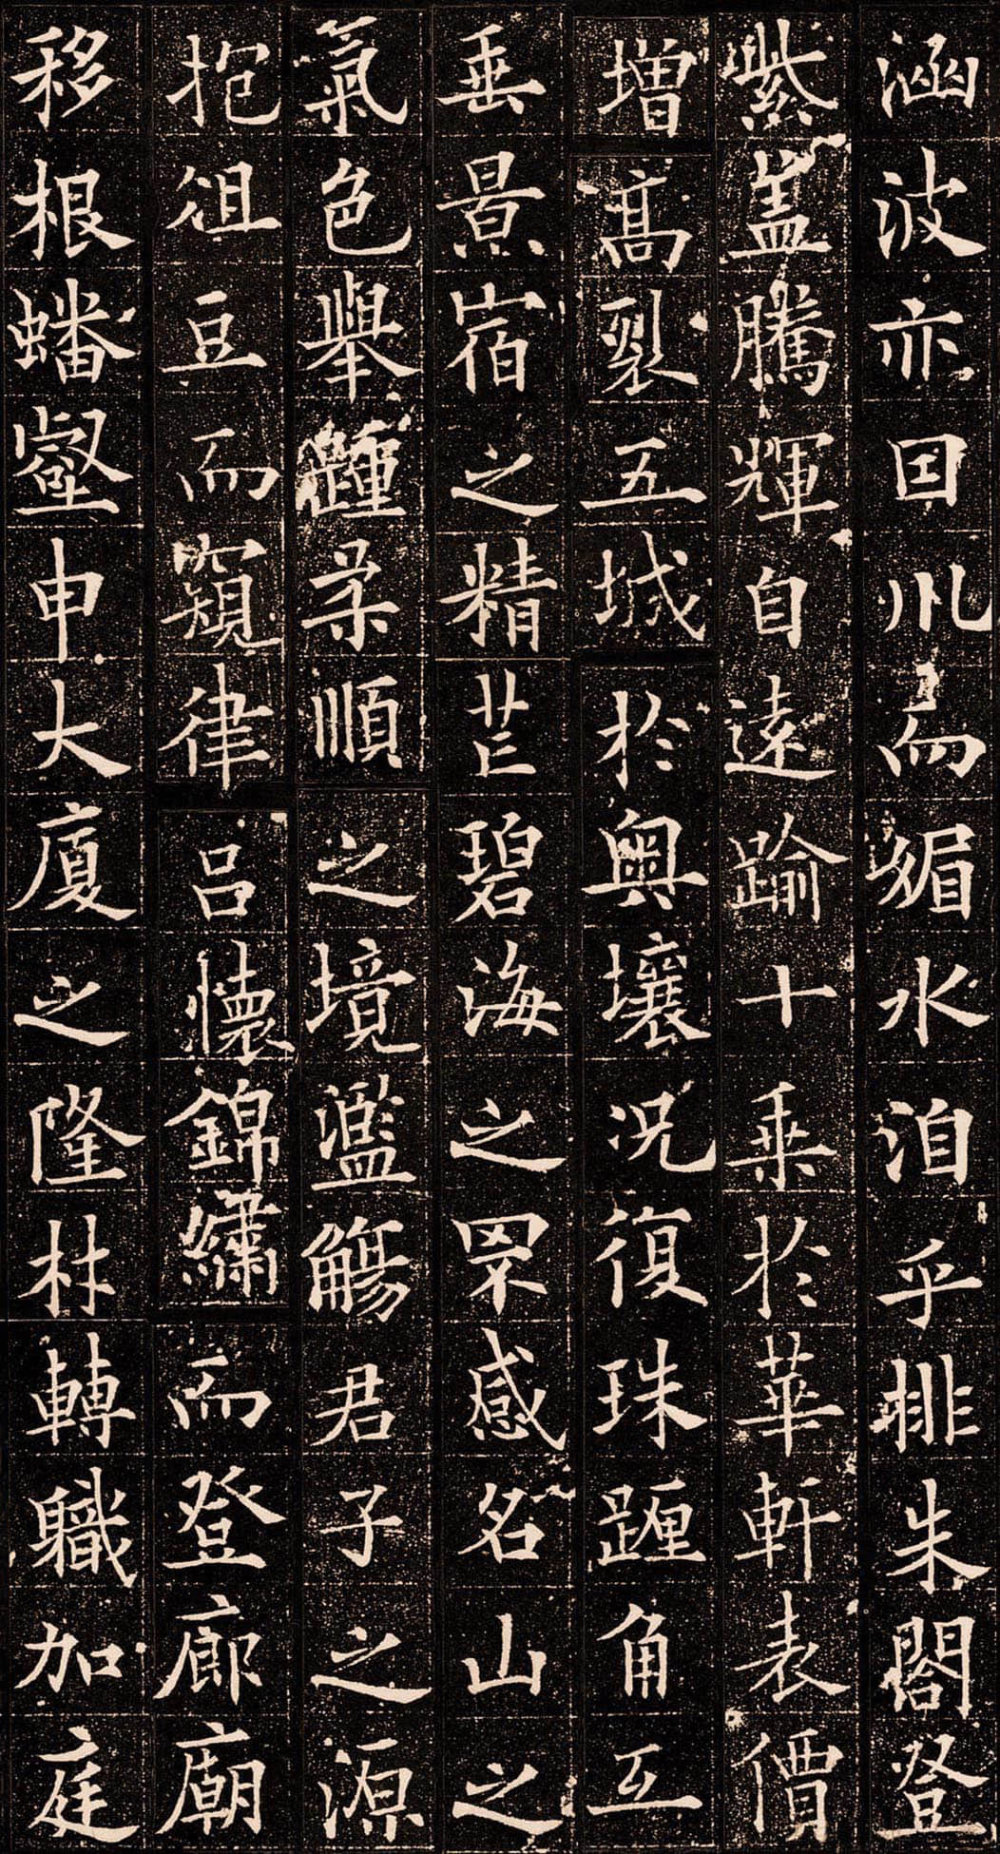 涵波亦因風而媚水洎乎排朱閣登
紫盖騰輝自遠踰十乘於華軒表價
増高裂五城於奧壤況復珠躔角亙
垂景宿之精芒碧海之罘感名山之
氣色舉踵柔順之境濫觴君子之源
抱俎豆而窺律呂懷錦繡而登廊廟
移根蟠壑申大廈之隆材轉職加庭